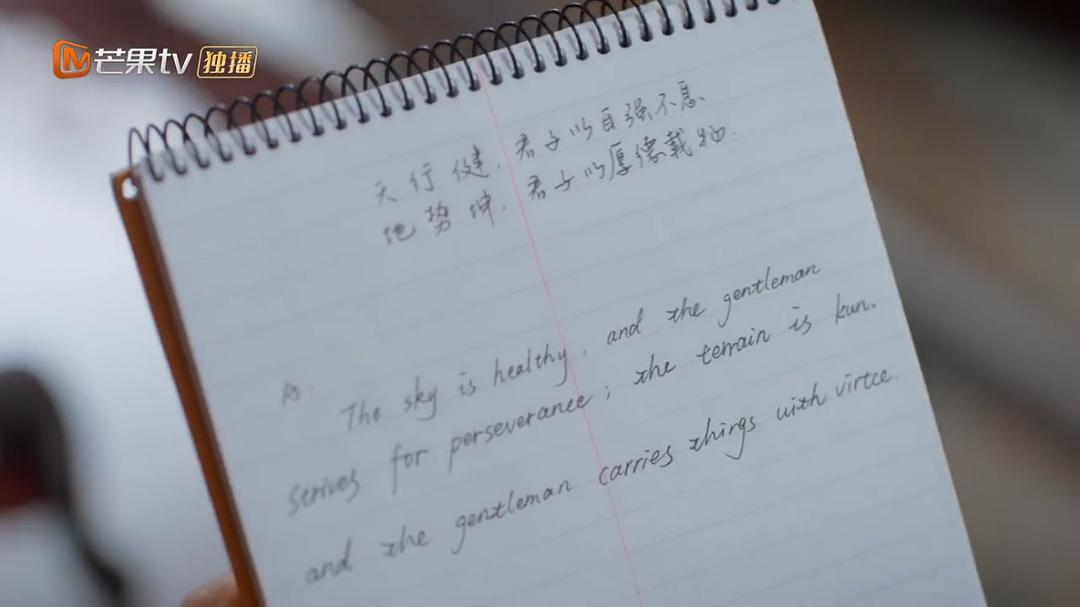 芒果tv 独播
天行健，君子以自强不息
地势坤，君子以厚德载物.
As.
The sky is healthy, and the gentleman
serives for perseverance; the terrain is kun.
and the gentleman carries things with virtce.